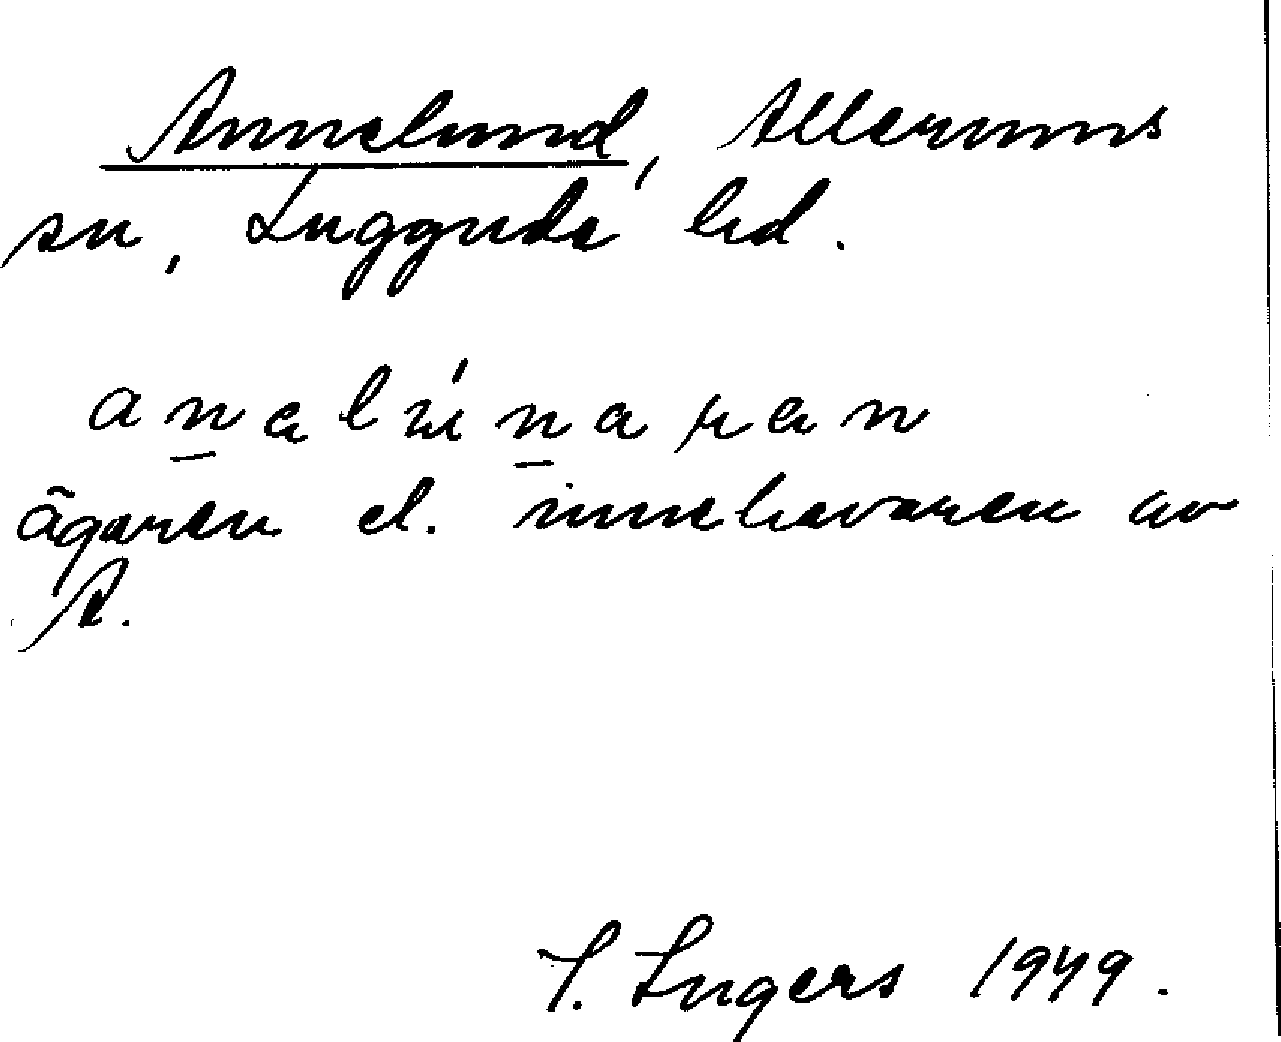 Annelund, Allerums
sn, Luggude hd.
anelúnaran
ägaren el. innehavaren av
A.
I. Ingers 1949.